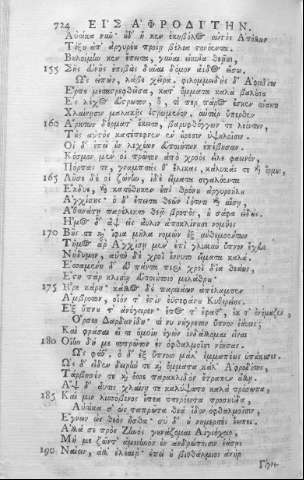 724 ΕΙΣ ΑΦΡΟΔΙΤΗΝ.
Αὐτίκα νῦν· οὐδ' εἴ κεν ἑκηβόλος αὐτὸς Ἀπόλλων
Τόξου ἀπ' ἀργυρέου προΐη βέλεα στονόεντα.
Βουλοίμην κεν ἔπειτα, γύναι εἰκυῖα θεῇσι,
155 Σῆς εὐνῆς ἐπιβὰς δῦναι δόμον ἄϊδος εἴσω.
Ὣς εἰπὼν, λάβε χεῖρα. φιλομμειδὴς δ' Ἀφροδίτη
Ἕρπε μεταστρεφθεῖσα, κατ' ὄμματα καλὰ βαλοῦσα
Ἐς λέχος εὔστρωτον, ὅθι περ πάρος ἔσκεν ἄνακτι
Χλαίνῃσιν μαλακῇς ἐστρωμένον· αὐτὰρ ὕπερθεν
160 Ἄρκτων δέρματ' ἔκειτο, βαρυφθόγγων τε λεόντων,
Τοὺς αὐτὸς κατέπεφνεν ἐν οὔρεσιν ὑψηλοῖσιν.
Οἱ δ' ἐπεὶ οὖν λεχέων εὐποιήτων ἐπέβησαν,
Κόσμον μέν οἱ πρῶτον ἀπὸ χροὸς εἷλε φαεινὸν,
Πόρπας τε, γναμπτάς θ' ἕλικας, κάλυκάς τε καὶ ὅρμους.
165 Λῦσε δέ οἱ ζώνην, ἰδὲ εἵματα σιγαλόεντα
Ἔκδυε, καὶ κατέθηκεν ἐπὶ θρόνου ἀργυροήλου
Ἀγχίσης· ὁ δ' ἔπειτα θεῶν ἰότητι καὶ αἴσῃ,
Ἀθανάτῃ παρέλεκτο θεᾷ βροτὸς, οὐ σάφα εἰδώς.
Ἦμος δ' ἂψ εἰς αὖλιν ἀποκλίνουσι νομῆες
170 Βοῦς τε καὶ ἴφια μῆλα νομῶν ἐξ ἀνθεμοέντων
Τῆμος ἄρ' Ἀγχίσῃ μὲν ἐπὶ γλυκὺν ὕπνον ἔχευε
Νήδυμον, αὐτὴ δὲ χροῒ ἕννυτο εἵματα καλά.
Ἑσσαμένη δ' εὖ πάντα περὶ χροῒ δῖα θεάων,
Ἔστη πὰρ κλισίῃ εὐποιήτοιο μελάθρου
175 κάρη· κάλλος δὲ παρειάων ἀπέλαμπεν
Ἄμβροτον, οἷόν τ' ἐστὶν ἐϋστεφάνου Κυθερείης.
Ἐξ ὕπνου τ' ἀνέγειρεν· ἔπος τ' ἔφατ', ἔκ τ' ὀνόμαζεν,
Ὄρσεο Δαρδανίδη· τί νυ νήγρετον ὕπνον ἰαύεις;
Καὶ φράσαι εἴ τι ὁμοίη ἐγὼν ἰνδάλλομαι εἶναι
180 Οἵην δή με τοπρῶτον ἐν ὀφθαλμοῖσι νόησας.
Ὣς φάθ', ὁ δ' ἐξ ὕπνοιο μάλ' ἐμμαπέως ὑπάκουσεν.
Ὡς δ' εἶδεν δειρήν τε καὶ ὄμματα κάλ' Ἀφροδίτης,
Τάρβησέν τε καὶ ὄσσε παρακλιδὸν ἔτραπεν ἄλλῃ.
Ἂψ δ' αὖτις χλαίνῃ τε καλύψατο καλὰ πρόσωπα,
185 Καί μιν λισσόμενος ἔπεα πτερόεντα προσηύδα,
Αὐτίκα σ' ὡς ταπρῶτα θεὰ ἴδον ὀφθαλμοῖσιν,
Ἔγνων ὡς θεὸς ἦσθα· σὺ δ' οὐ νημερτὲς ἔειπες.
Ἀλλά σε πρὸς Ζηνὸς γουνάζομαι Αἰγιόχοιο,
Μή με ζῶντ' ἀμενηνὸν ἐν ἀνθρώποισιν ἐάσῃς
190 Ναίειν, ἀλλ' ἐλέαιρ'· ἐπεὶ οὐ βιοθάλμιος ἀνὴρ
Γίγνε-